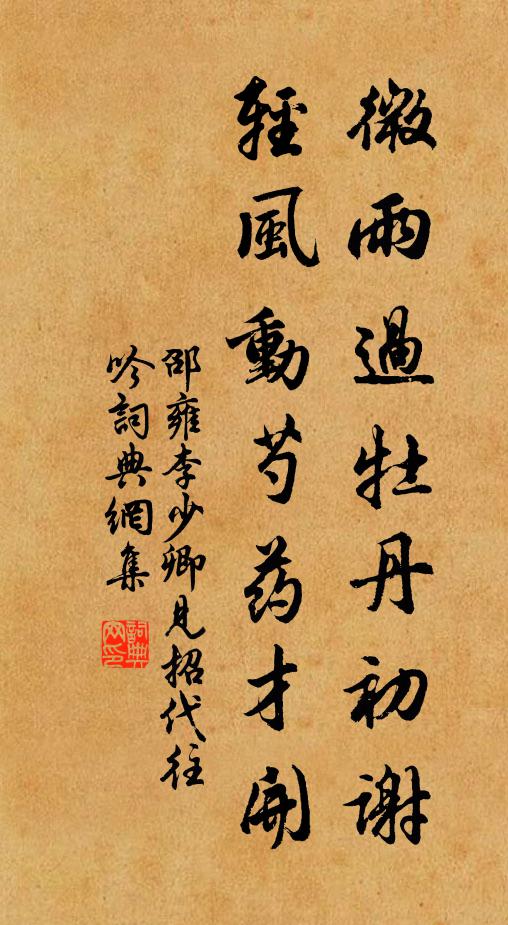 微雨過牡丹初谢
輕風動芍药才開
邵雍李少卿見招代往
吟詞典網集
詞典
网印